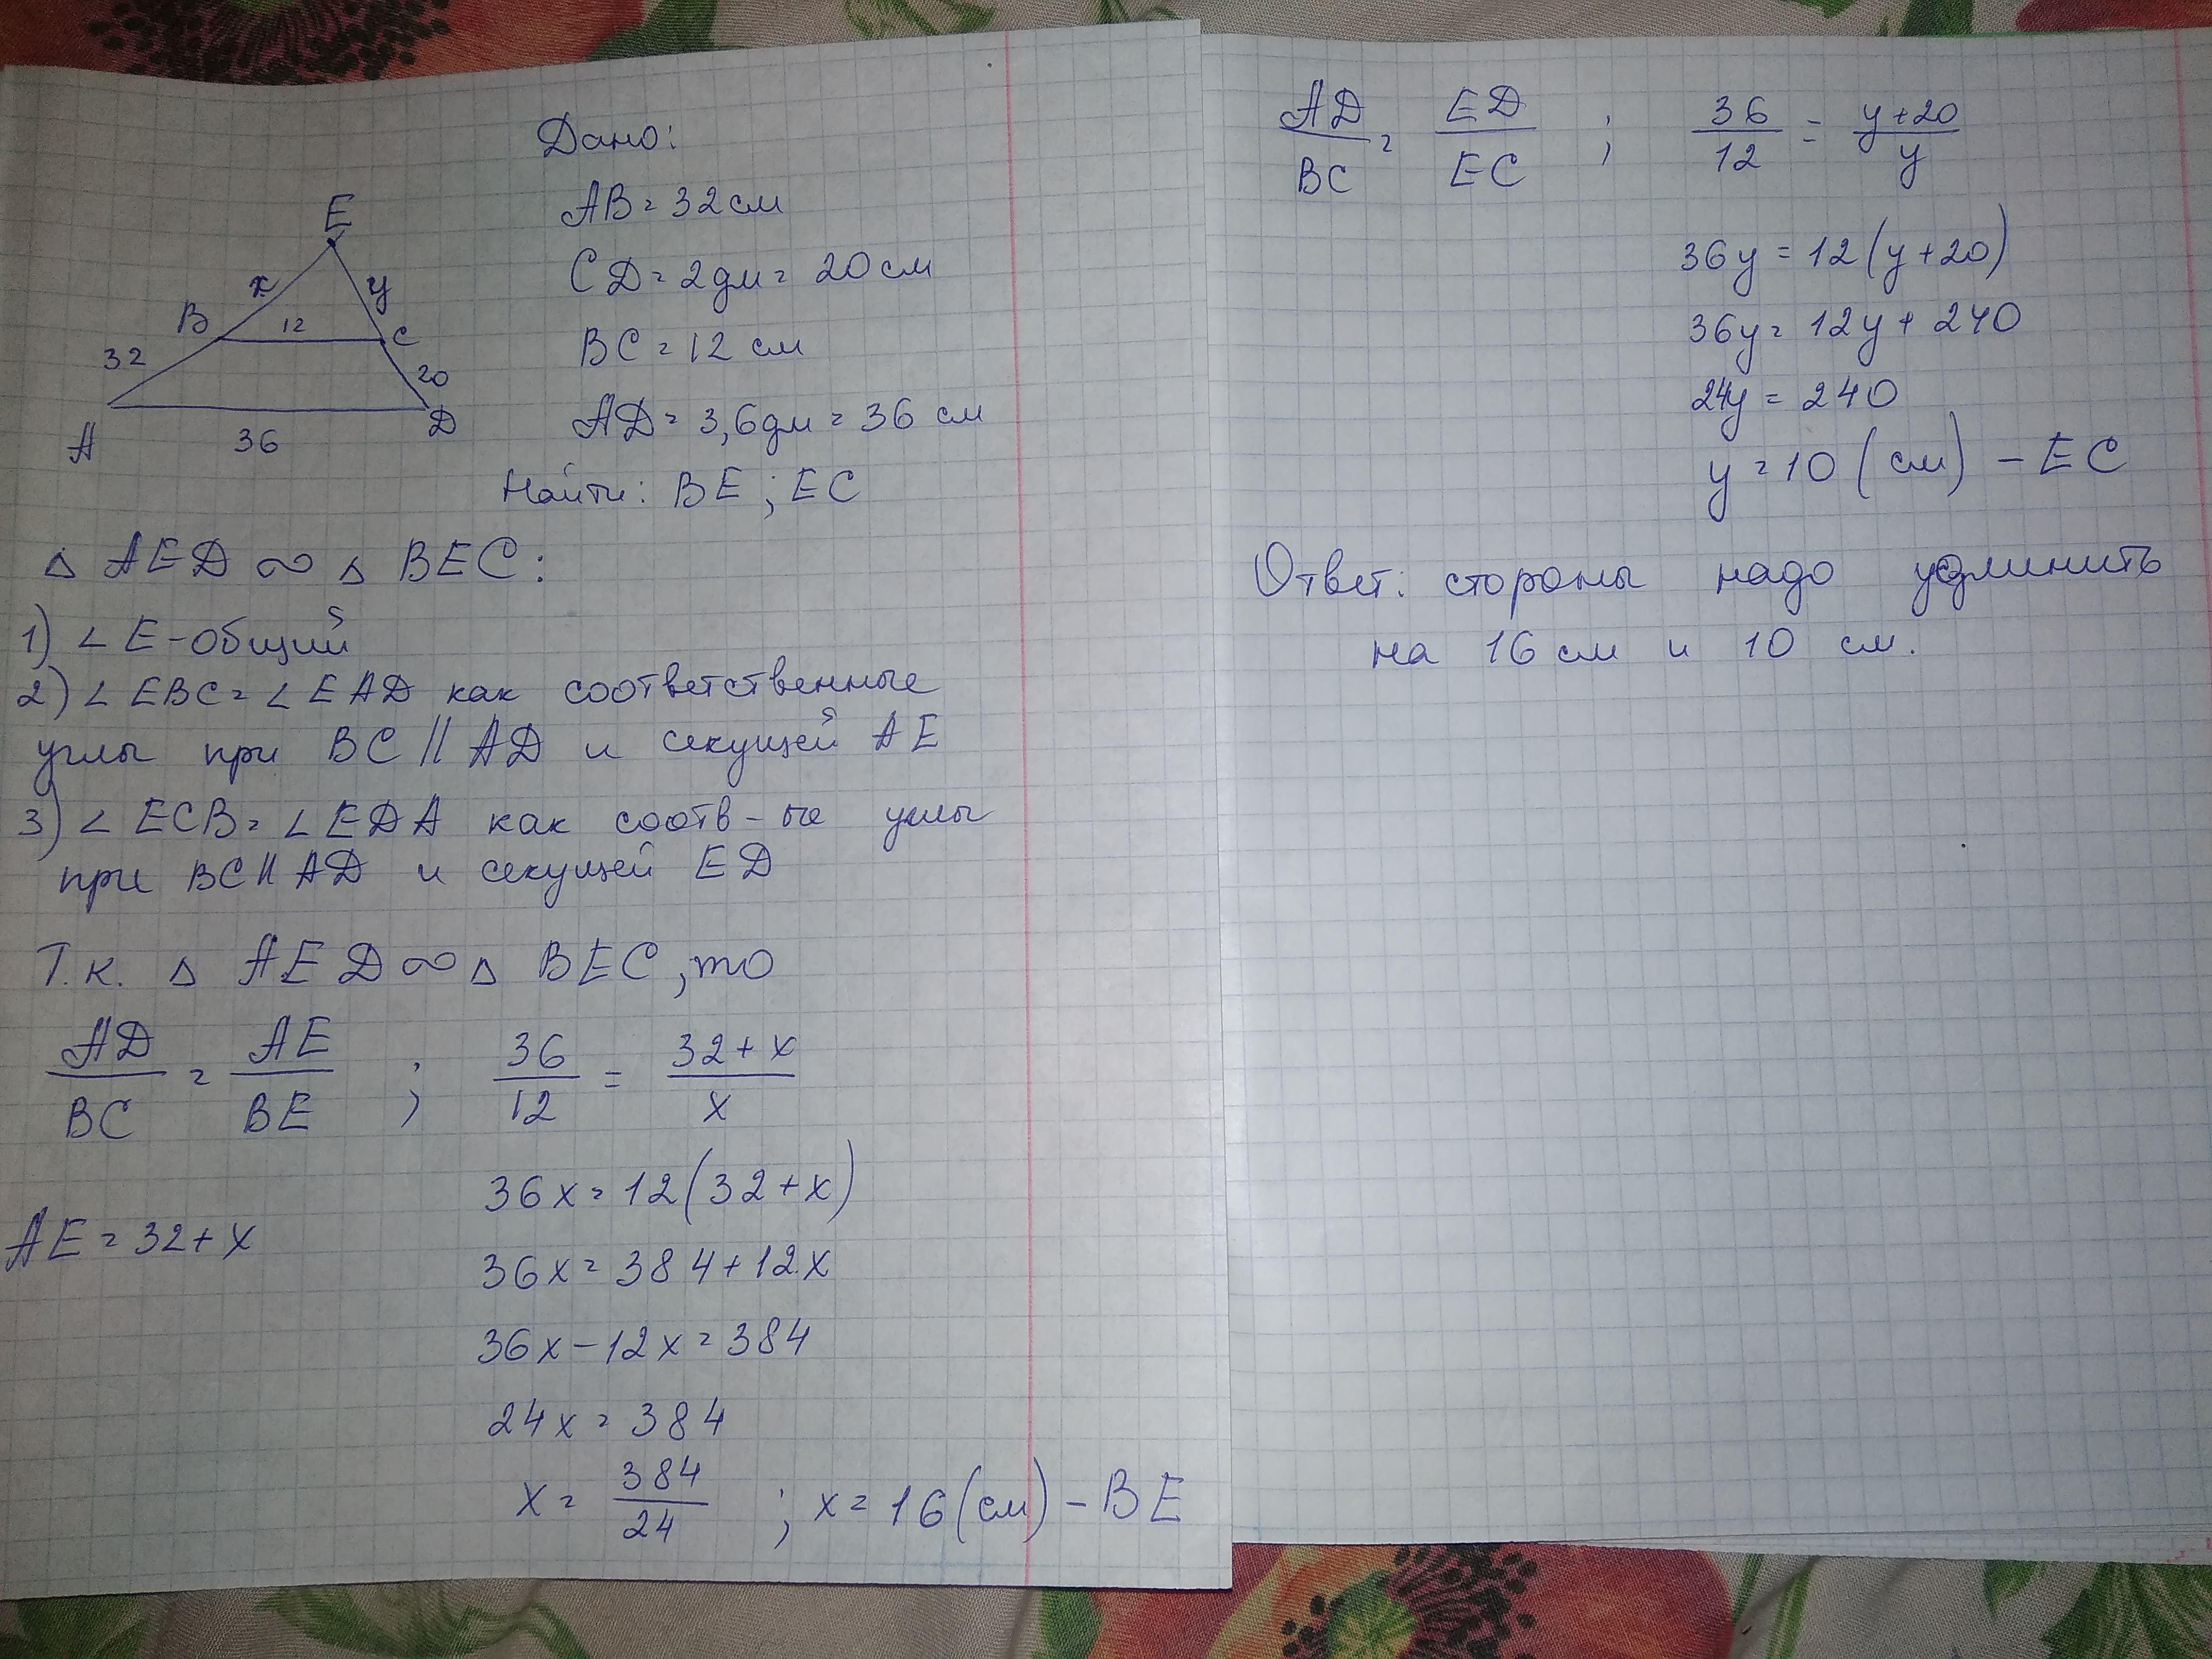 Дано:
AB = 32 см
CD = 2 дм = 20 см
BC = 12 см
AD = 3,6 дм = 36 см
Найти: BE ; EC
E
x
y
B
12
C
32
20
A
36
D
△ AED ∞ △ BEC:
1) ∠ E - общий
2) ∠ EBC = ∠ EAD как соответственные
углы при BC || AD и секущей AE
3) ∠ ECB = ∠ EDA как соотв-ые углы
при BC || AD и секущей ED
Т.к. △ AED ∞ △ BEC, то
AD/BC = AE/BE ; 36/12 = (32+x)/x
36x = 12(32+x)
AE = 32+x
36x = 384+12x
36x - 12x = 384
24x = 384
x = 384/24 ; x = 16 (см) - BE
AD/BC = ED/EC ; 36/12 = (y+20)/y
36y = 12(y+20)
36y = 12y + 240
24y = 240
y = 10 (см) - EC
Ответ: стороны надо удлинить
на 16 см и 10 см.